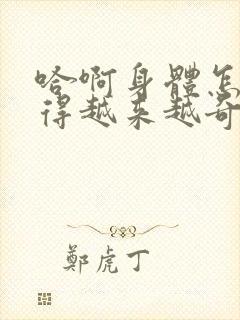 哈啊身體怎
得越来越奇
鄭虎丁